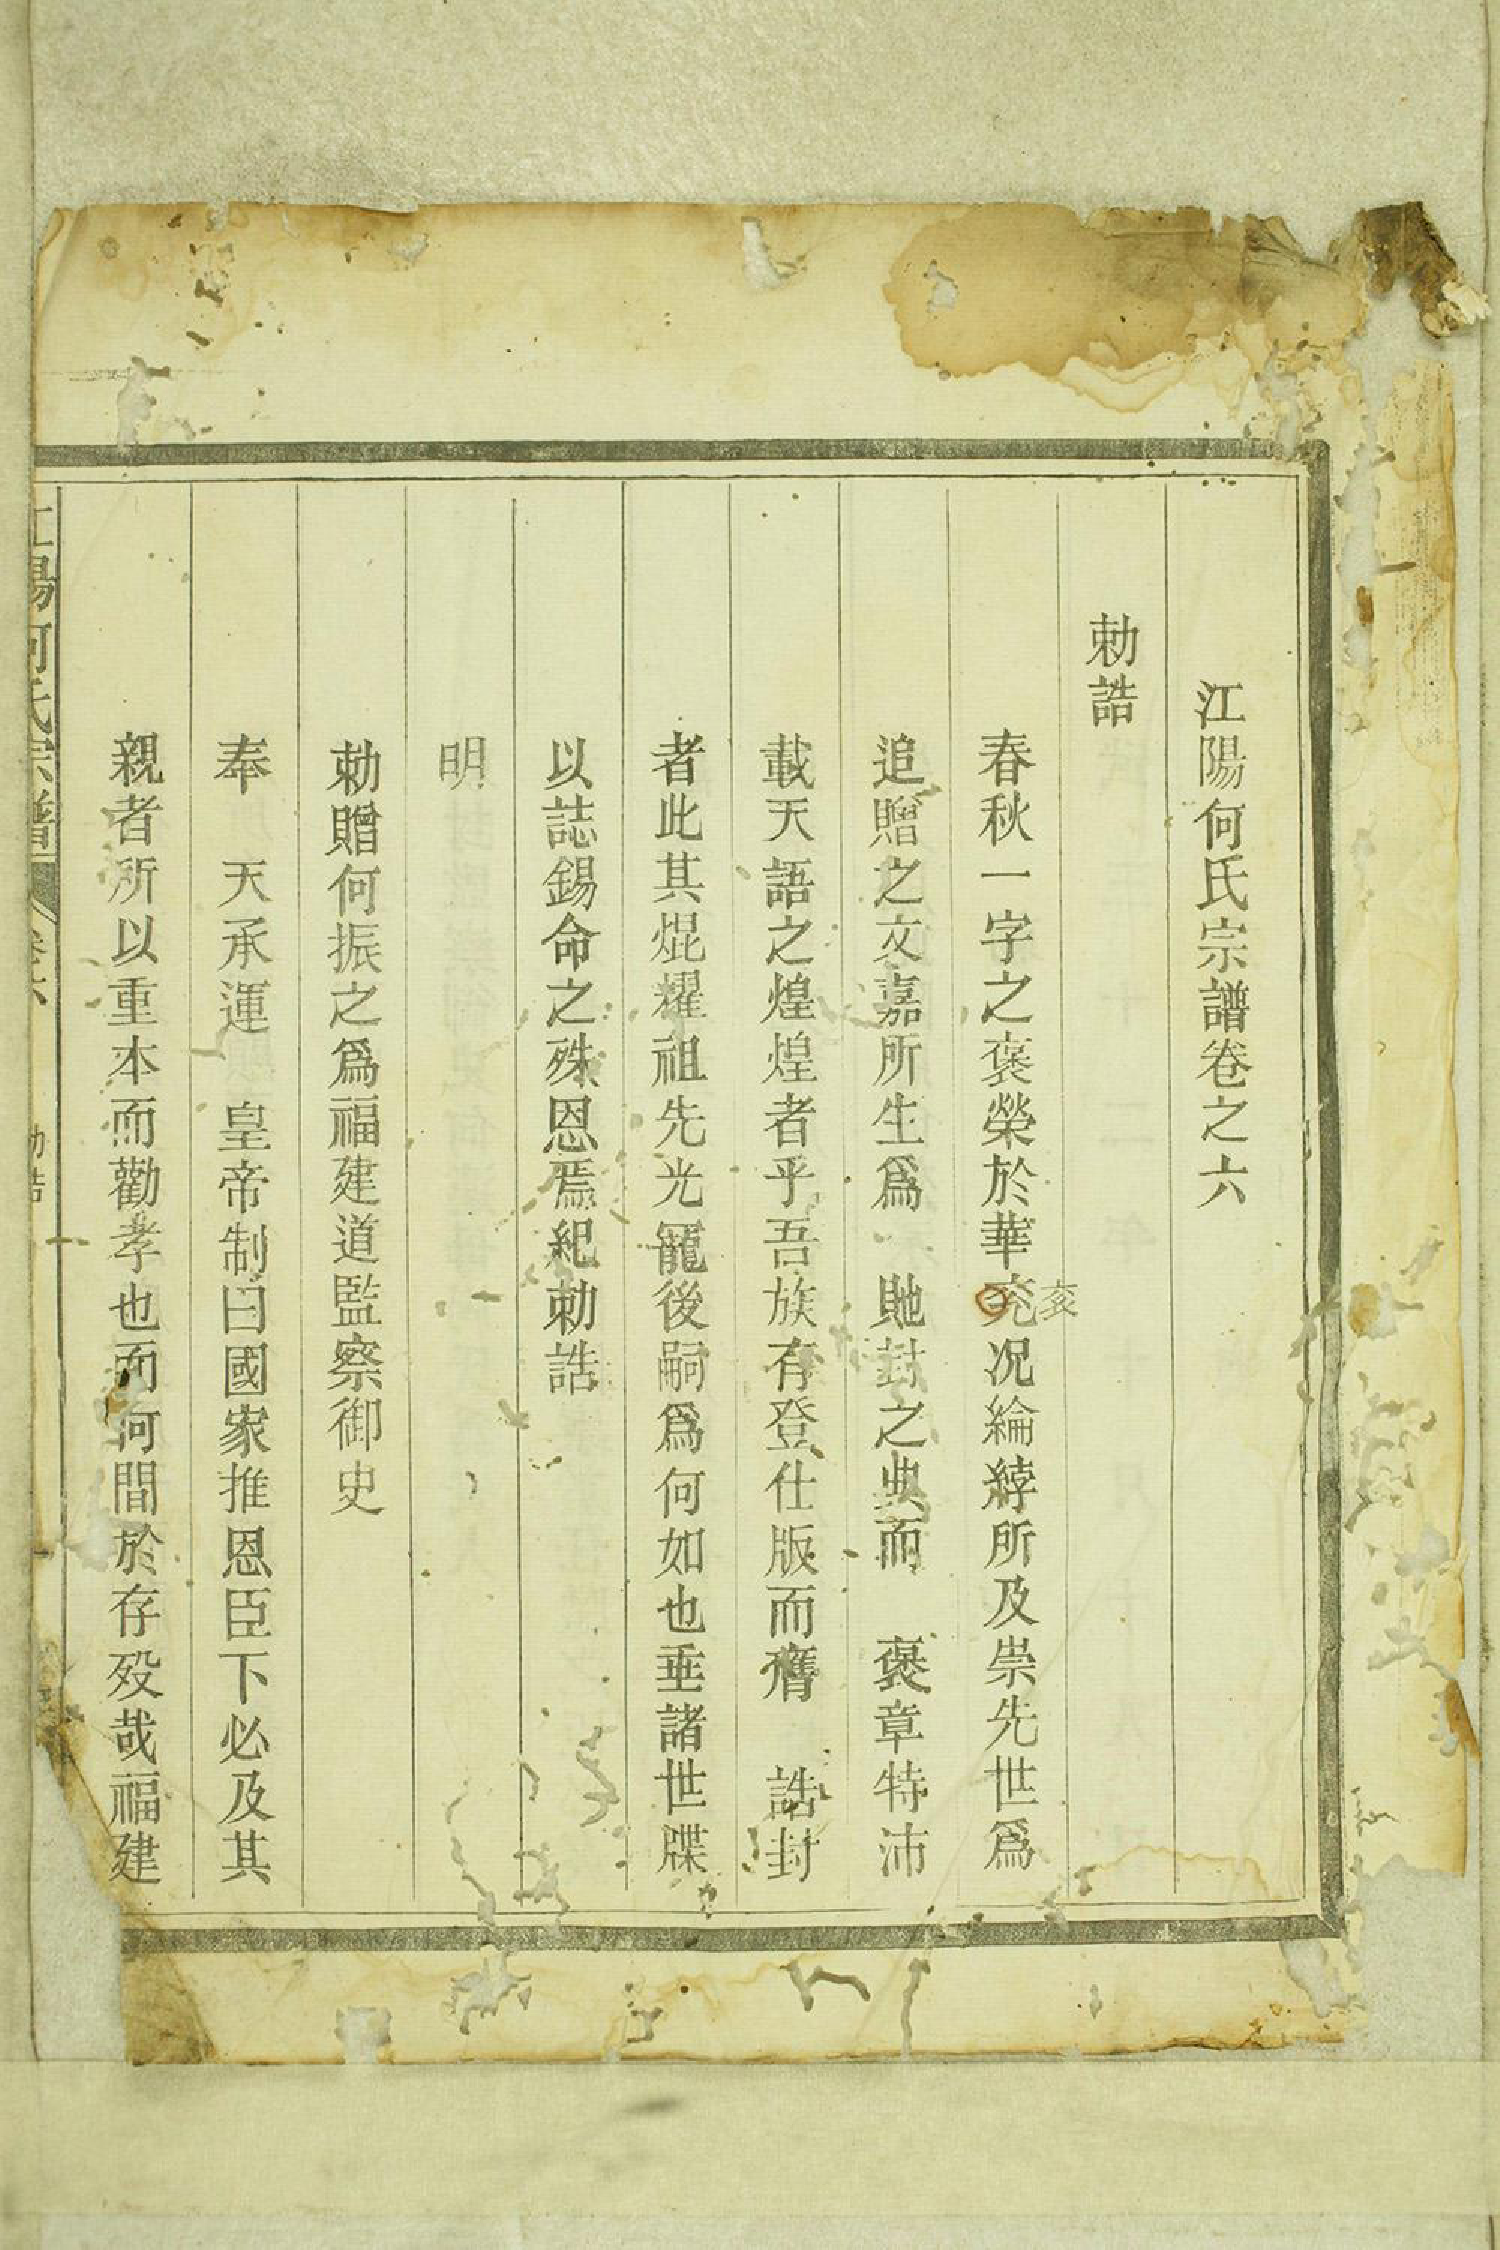 江陽何氏宗譜卷之六
勅誥
春秋一字之褒榮於華兖况綸綍所及崇先世爲
衮
追贈之文嘉所生爲 貤封之典而 褒章特沛
載天語之煌煌者乎吾族有登仕版而膺 誥封
者此其焜耀祖先光寵後嗣爲何如也垂諸世牒
以誌錫命之殊恩焉紀勅誥
明
勅贈何振之爲福建道監察御史
奉 天承運 皇帝制曰國家推恩臣下必及其
親者所以重本而勸孝也而何間於存歿哉福建
江陽何氏宗譜 卷六 勅誥